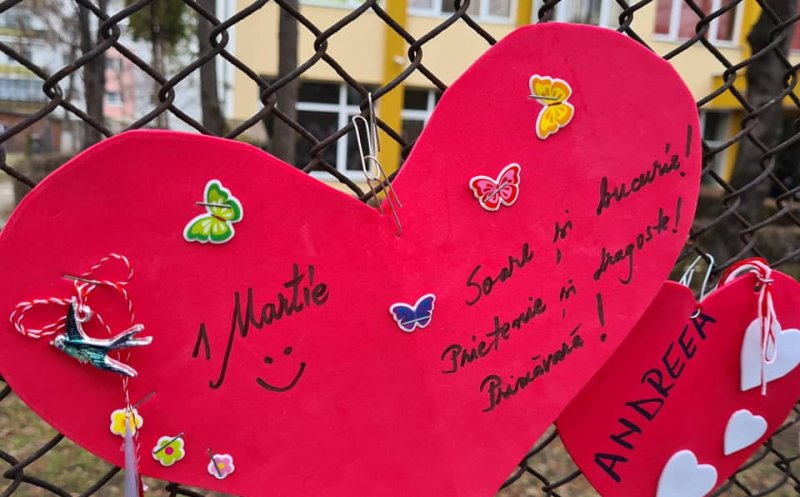 1 Martie
Soare și bucurie!
Prietenie și dragoste!
Primăvară!
ANDREEA